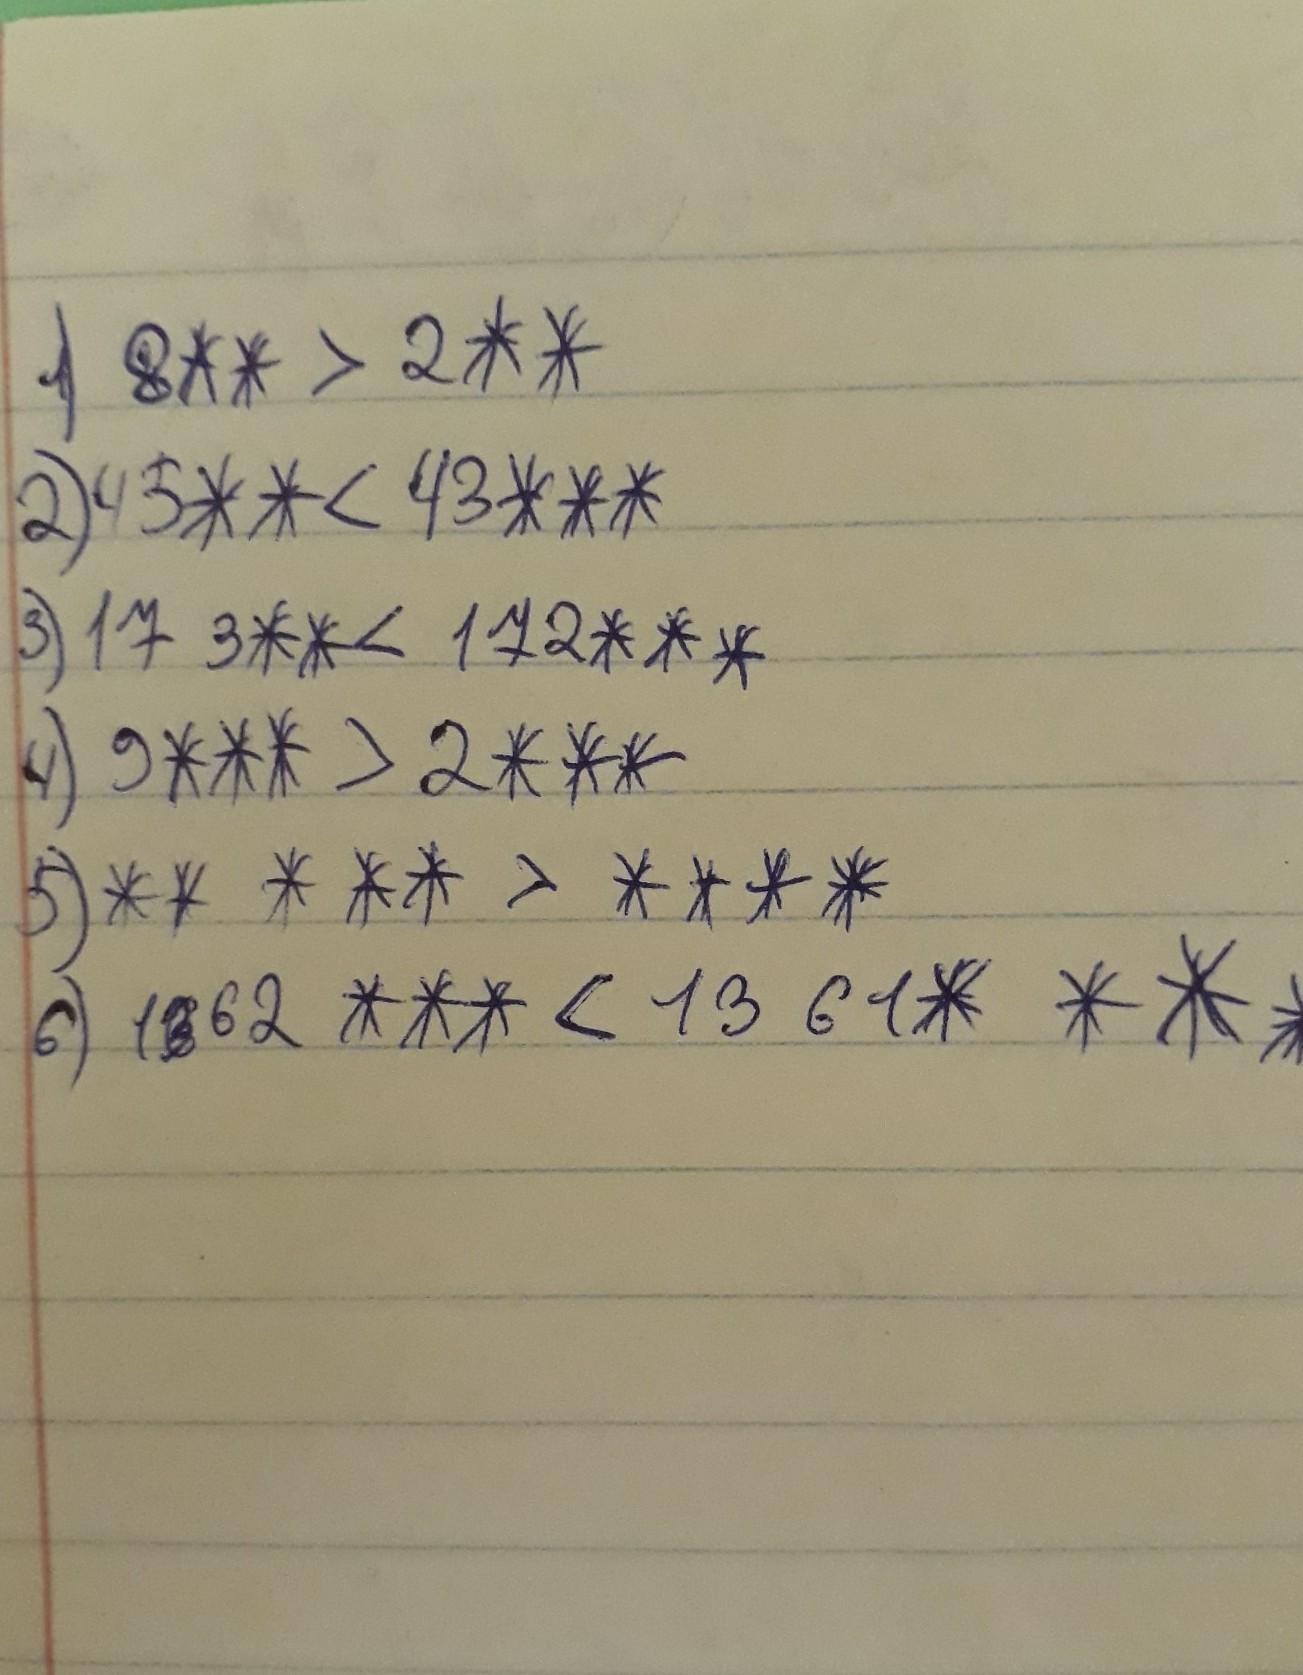 1) 8** > 2**
2) 45** < 43***
3) 17 3** < 172***
4) 9*** > 2***
5) ** *** > ****
6) 1362 *** < 13 61* ***